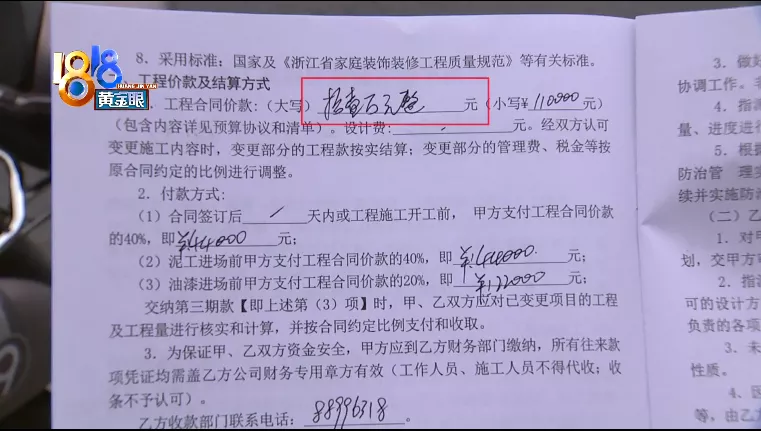 1818
HUANG JIN YAN
黄金眼
8．采用标准：国家及《浙江省家庭装饰装修工程质量规范》等有关标准。
、工程价款及结算方式
．工程合同价款：（大写）拾壹万元整元（小写¥110000元）
（包含内容详见预算协议和清单）。设计费：/元。经双方认可
变更施工内容时，变更部分的工程款按实结算；变更部分的管理费、税金等按
原合同约定的比例进行调整。
2．付款方式：
（1）合同签订后/天内或工程施工开工前，甲方支付工程合同价款
的40%，即¥44000元；
（2）泥工进场前甲方支付工程合同价款的40%，即¥44000元；
（3）油漆进场前甲方支付工程合同价款的20%，即¥22000元；
交纳第三期款【即上述第（3）项】时，甲、乙双方应对已变更项目的工程
及工程量进行核实和计算，并按合同约定比例支付和收取。
3．为保证甲、乙双方资金安全，甲方应到乙方财务部门缴纳，所有往来款
项凭证均需盖乙方公司财务专用章方有效（工作人员、施工人员不得代收；收
条不予认可）。
乙方收款部门联系电话：88996318。
3．做好
协调工作。非
4．指派
量、进度进行
5．根据
防治管 理实
续并实施防治
（二）乙
1．对甲
划，交甲方审
2．指派
可的设计方
负责的各项
3．未
性质。
4．因
等，由乙方